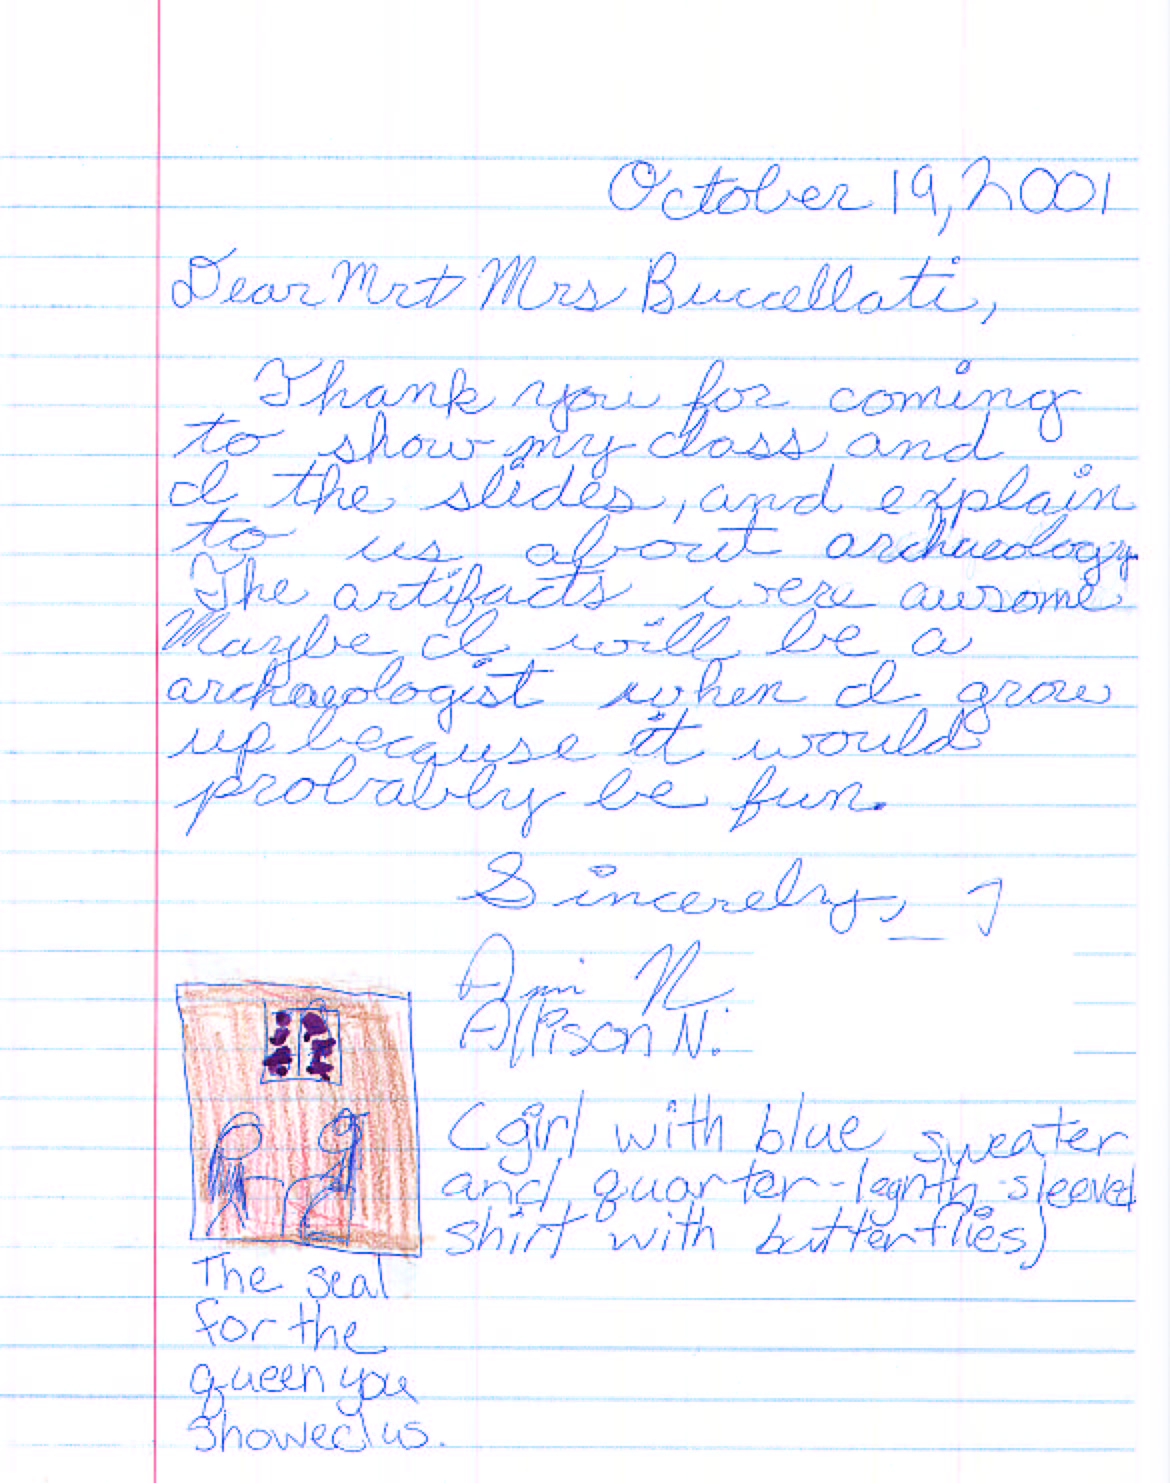 October 19, 2001
Dear Mr + Mrs Buccellati,
Thank you for coming
to show my class and
I the slides, and explain
to us about archaeology
The artifacts were awsome
Maybe I will be a
archaeologist when I grow
up because it would
probably be fun.
Sincerely,
N
Allison N.
(girl with blue sweater
and quarter-legnth sleeved
shirt with butterflies)
The seal
for the
queen you
showed us.